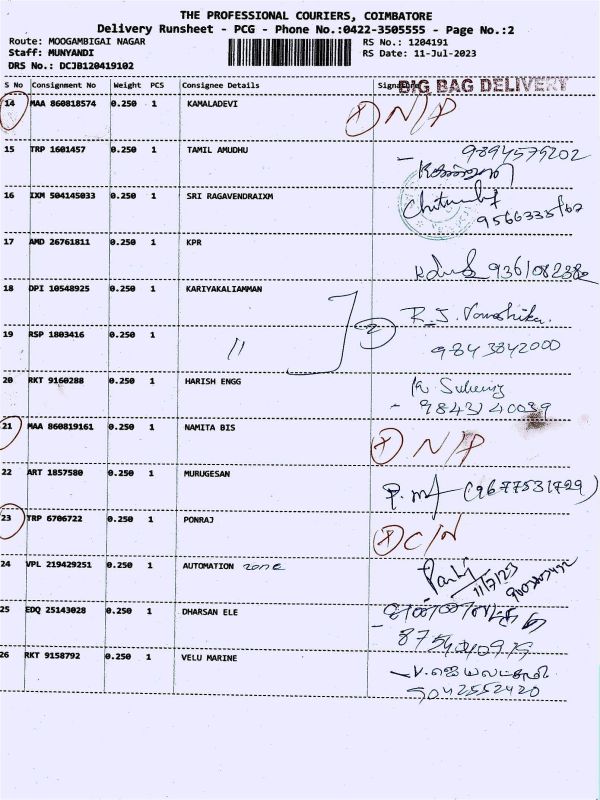 THE PROFESSIONAL COURIERS, COIMBATORE
Delivery Runsheet - PCG - Phone No.:0422-3505555 - Page No.:2
Route: MOOGAMBIGAI NAGAR RS No.: 1204191
Staff: MUNYANDI RS Date: 11-Jul-2023
DRS No.: DCJB120419102
S No Consignment No Weight PCS Consignee Details Signature BIG BAG DELIVERY
14 MAA 860818574 0.250 1 KAMALADEVI N/P
15 TRP 1601457 0.250 1 TAMIL AMUDHU 9894579202
16 IXM 504145033 0.250 1 SRI RAGAVENDRAIXM
17 AMD 26761811 0.250 1 KPR
18 DPI 10548925 0.250 1 KARIYAKALIAMMAN R.J.
19 RSP 1803416 0.250 1 " 2 9843842000
20 RKT 9160288 0.250 1 HARISH ENGG
9843140039
21 MAA 860819161 0.250 1 NAMITA BIS N/P
22 ART 1857580 0.250 1 MURUGESAN (9677531729)
23 TRP 6706722 0.250 1 PONRAJ C/N
24 VPL 219429251 0.250 1 AUTOMATION zone 11/7/23
25 EDQ 25143028 0.250 1 DHARSAN ELE
26 RKT 9158792 0.250 1 VELU MARINE
9042552420